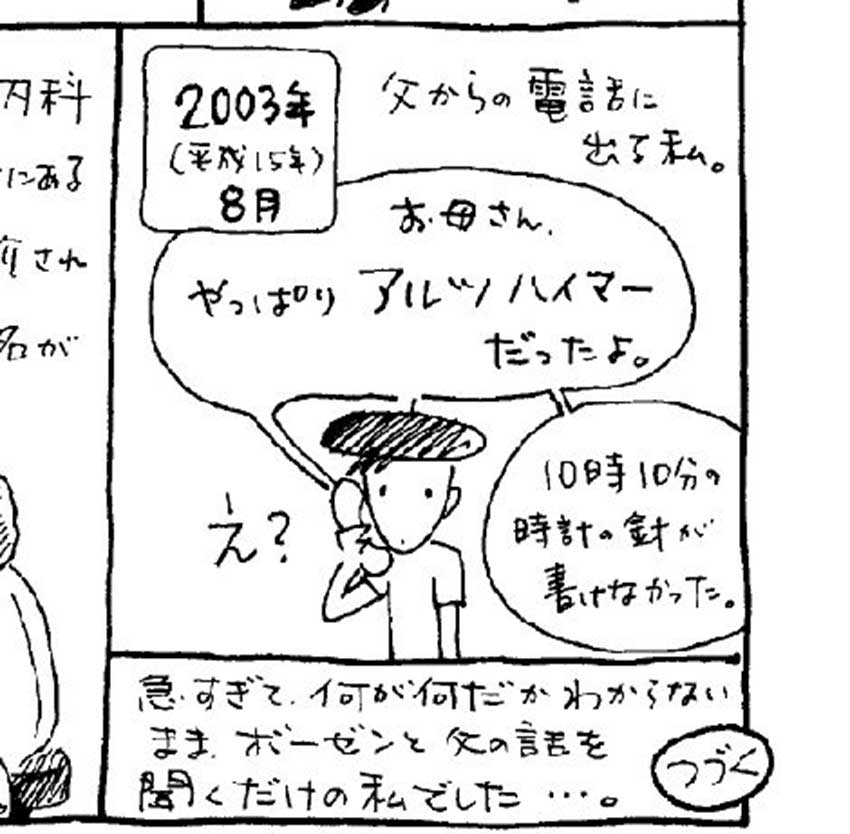 2003年
(平成15年)
8月
父からの電話に
出る私。
お母さん、
やっぱり アルツハイマー
だったよ。
10時10分の
時計の針が
書けなかった。
え?
急すぎて、何が何だかわからない
まま、ボーゼンと父の話を
聞くだけの私でした…。
つづく
内科
にある
され
名が